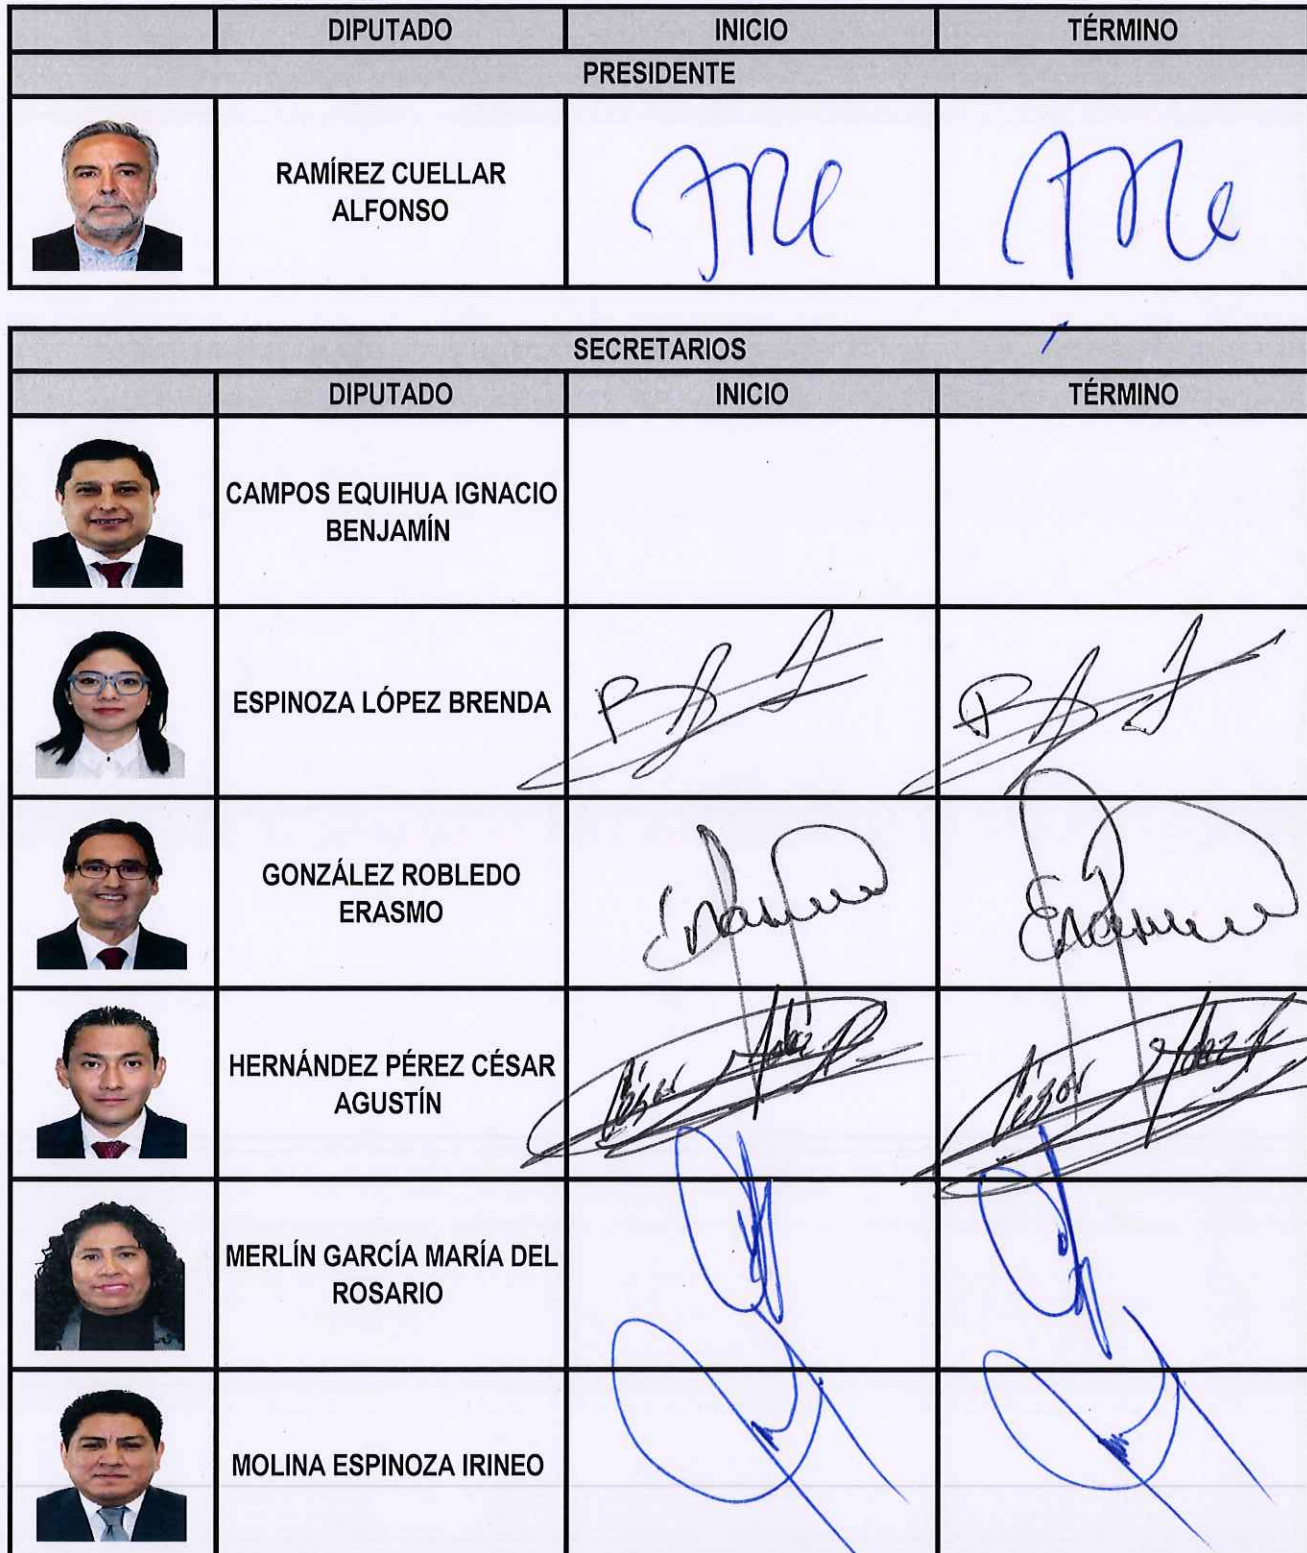 DIPUTADO INICIO TÉRMINO
PRESIDENTE
RAMÍREZ CUELLAR
ALFONSO
SECRETARIOS
DIPUTADO INICIO TÉRMINO
CAMPOS EQUIHUA IGNACIO
BENJAMÍN
ESPINOZA LÓPEZ BRENDA
GONZÁLEZ ROBLEDO
ERASMO
HERNÁNDEZ PÉREZ CÉSAR
AGUSTÍN
MERLÍN GARCÍA MARÍA DEL
ROSARIO
MOLINA ESPINOZA IRINEO